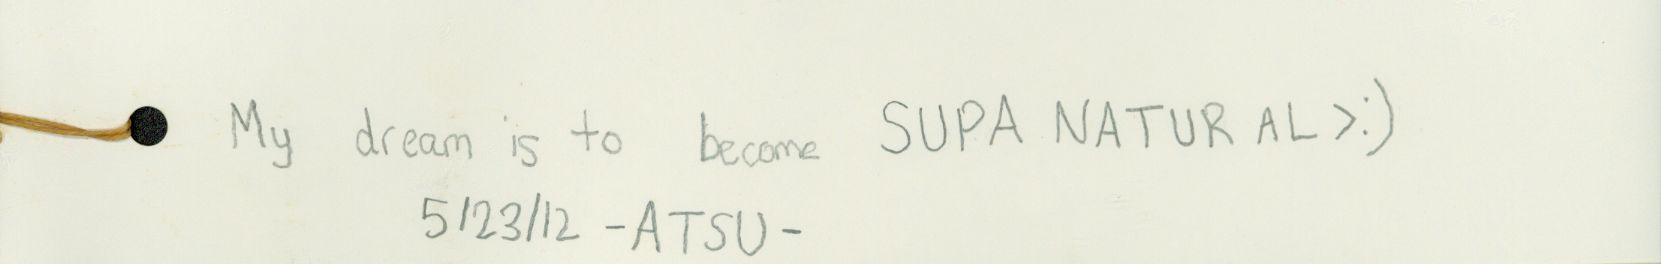 My dream is to become SUPA NATURAL >:)
5/23/12 -ATSU-